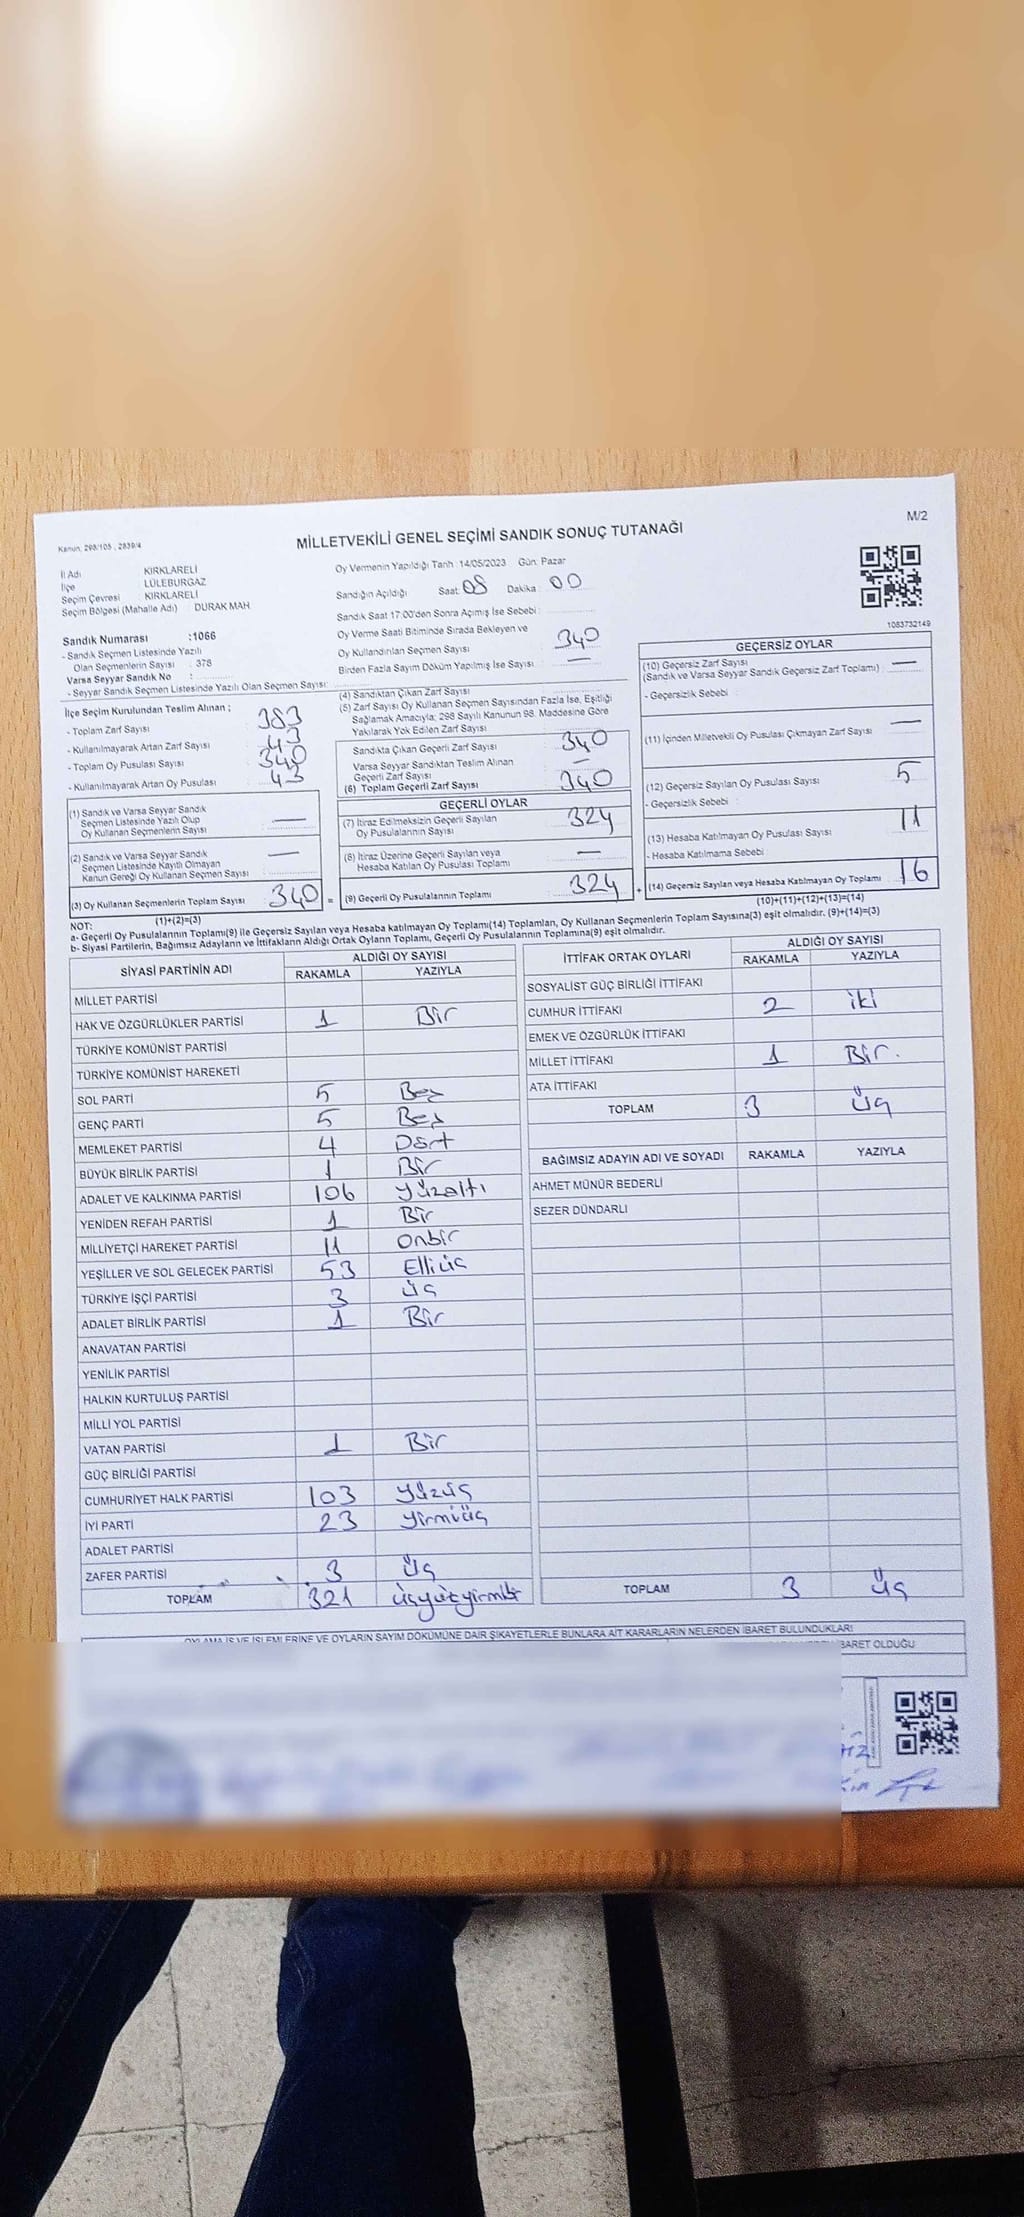 Kanun: 298/105 , 2839/4
MİLLETVEKİLİ GENEL SEÇİMİ SANDIK SONUÇ TUTANAĞI
M/2
İl Adı KIRKLARELİ
İlçe LÜLEBURGAZ
Seçim Çevresi KIRKLARELİ
Seçim Bölgesi (Mahalle Adı) : DURAK MAH
Sandık Numarası :1066
- Sandık Seçmen Listesinde Yazılı
Olan Seçmenlerin Sayısı : 378
Varsa Seyyar Sandık No :
- Seyyar Sandık Seçmen Listesinde Yazılı Olan Seçmen Sayısı:
Oy Vermenin Yapıldığı Tarih :14/05/2023 Gün: Pazar
Sandığın Açıldığı Saat: 08 Dakika : 00
Sandık Saat 17:00'den Sonra Açmış İse Sebebi :
Oy Verme Saati Bitiminde Sırada Bekleyen ve
Oy Kullandırılan Seçmen Sayısı 340
Birden Fazla Sayım Döküm Yapılmış İse Sayısı : —
1083732149
İlçe Seçim Kurulundan Teslim Alınan ;
- Toplam Zarf Sayısı 383
- Kullanılmayarak Artan Zarf Sayısı 43
- Toplam Oy Pusulası Sayısı 340
- Kullanılmayarak Artan Oy Pusulası 43
(1) Sandık ve Varsa Seyyar Sandık
Seçmen Listesinde Yazılı Olup
Oy Kullanan Seçmenlerin Sayısı —
(2) Sandık ve Varsa Seyyar Sandık
Seçmen Listesinde Kayıtlı Olmayan
Kanun Gereği Oy Kullanan Seçmen Sayısı : —
(3) Oy Kullanan Seçmenlerin Toplam Sayısı 340 =
(1)+(2)=(3)
(4) Sandıktan Çıkan Zarf Sayısı
(5) Zarf Sayısı Oy Kullanan Seçmen Sayısından Fazla İse, Eşitliği
Sağlamak Amacıyla; 298 Sayılı Kanunun 98. Maddesine Göre
Yakılarak Yok Edilen Zarf Sayısı
Sandıkta Çıkan Geçerli Zarf Sayısı 340
Varsa Seyyar Sandıktan Teslim Alınan
Geçerli Zarf Sayısı —
(6) Toplam Geçerli Zarf Sayısı 340
GEÇERLİ OYLAR
(7) İtiraz Edilmeksizin Geçerli Sayılan
Oy Pusulalarının Sayısı 324
(8) İtiraz Üzerine Geçerli Sayılan veya
Hesaba Katılan Oy Pusulası Toplamı —
(9) Geçerli Oy Pusulalarının Toplamı 324 +
GEÇERSİZ OYLAR
(10) Geçersiz Zarf Sayısı
(Sandık ve Varsa Seyyar Sandık Geçersiz Zarf Toplamı) : —
- Geçersizlik Sebebi :
(11) İçinden Milletvekili Oy Pusulası Çıkmayan Zarf Sayısı —
(12) Geçersiz Sayılan Oy Pusulası Sayısı 5
- Geçersizlik Sebebi :
(13) Hesaba Katılmayan Oy Pusulası Sayısı 11
- Hesaba Katılmama Sebebi
(14) Geçersiz Sayılan veya Hesaba Katılmayan Oy Toplamı 16
(10)+(11)+(12)+(13)=(14)
NOT:
a- Geçerli Oy Pusulalarının Toplamı(9) ile Geçersiz Sayılan veya Hesaba katılmayan Oy Toplamı(14) Toplamları, Oy Kullanan Seçmenlerin Toplam Sayısına(3) eşit olmalıdır. (9)+(14)=(3)
b- Siyasi Partilerin, Bağımsız Adayların ve İttifakların Aldığı Ortak Oyların Toplamı, Geçerli Oy Pusulalarının Toplamına(9) eşit olmalıdır.
SİYASİ PARTİNİN ADI ALDIĞI OY SAYISI
RAKAMLA YAZIYLA
MİLLET PARTİSİ
HAK VE ÖZGÜRLÜKLER PARTİSİ 1 Bir
TÜRKİYE KOMÜNİST PARTİSİ
TÜRKİYE KOMÜNİST HAREKETİ
SOL PARTİ 5 Beş
GENÇ PARTİ 5 Beş
MEMLEKET PARTİSİ 4 Dört
BÜYÜK BİRLİK PARTİSİ 1 Bir
ADALET VE KALKINMA PARTİSİ 106 yüzaltı
YENİDEN REFAH PARTİSİ 1 Bir
MİLLİYETÇİ HAREKET PARTİSİ 11 onbir
YEŞİLLER VE SOL GELECEK PARTİSİ 53 Elliüç
TÜRKİYE İŞÇİ PARTİSİ 3 üç
ADALET BİRLİK PARTİSİ 1 Bir
ANAVATAN PARTİSİ
YENİLİK PARTİSİ
HALKIN KURTULUŞ PARTİSİ
MİLLİ YOL PARTİSİ
VATAN PARTİSİ 1 Bir
GÜÇ BİRLİĞİ PARTİSİ
CUMHURİYET HALK PARTİSİ 103 yüzüç
İYİ PARTİ 23 yirmiüç
ADALET PARTİSİ
ZAFER PARTİSİ 3 üç
TOPLAM 321 üçyüzyirmibir
İTTİFAK ORTAK OYLARI ALDIĞI OY SAYISI
RAKAMLA YAZIYLA
SOSYALİST GÜÇ BİRLİĞİ İTTİFAKI
CUMHUR İTTİFAKI 2 iki
EMEK VE ÖZGÜRLÜK İTTİFAKI
MİLLET İTTİFAKI 1 Bir.
ATA İTTİFAKI
TOPLAM 3 üç
BAĞIMSIZ ADAYIN ADI VE SOYADI RAKAMLA YAZIYLA
AHMET MÜNÜR BEDERLİ
SEZER DÜNDARLI
TOPLAM 3 üç
OYLAMA İŞ VE İŞLEMLERİNE VE OYLARIN SAYIM DÖKÜMÜNE DAİR ŞİKAYETLERLE BUNLARA AİT KARARLARIN NELERDEN İBARET BULUNDUKLARI
BARET OLDUĞU